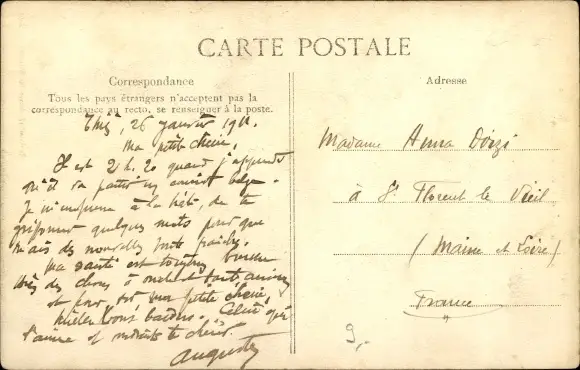 CARTE POSTALE
Correspondance
Tous les pays étrangers n'acceptent pas la
correspondance au recto, se renseigner à la poste.
26 Janvier 1911.
Ma petite chérie,
Il est 2 h. 20 quand j'apprends
qu'il va partir un
Je m'empresse à la hâte, de te
griffonner quelques mots pour que
tu aies des nouvelles
Ma santé est toujours bonne
bien des choses à
et pour toi, ma petite chérie,
baisers. Celui qui
t'aime et
Auguste
Adresse
Madame Anna
à St Florent le Vieil
(Maine et Loire)
France
9,-